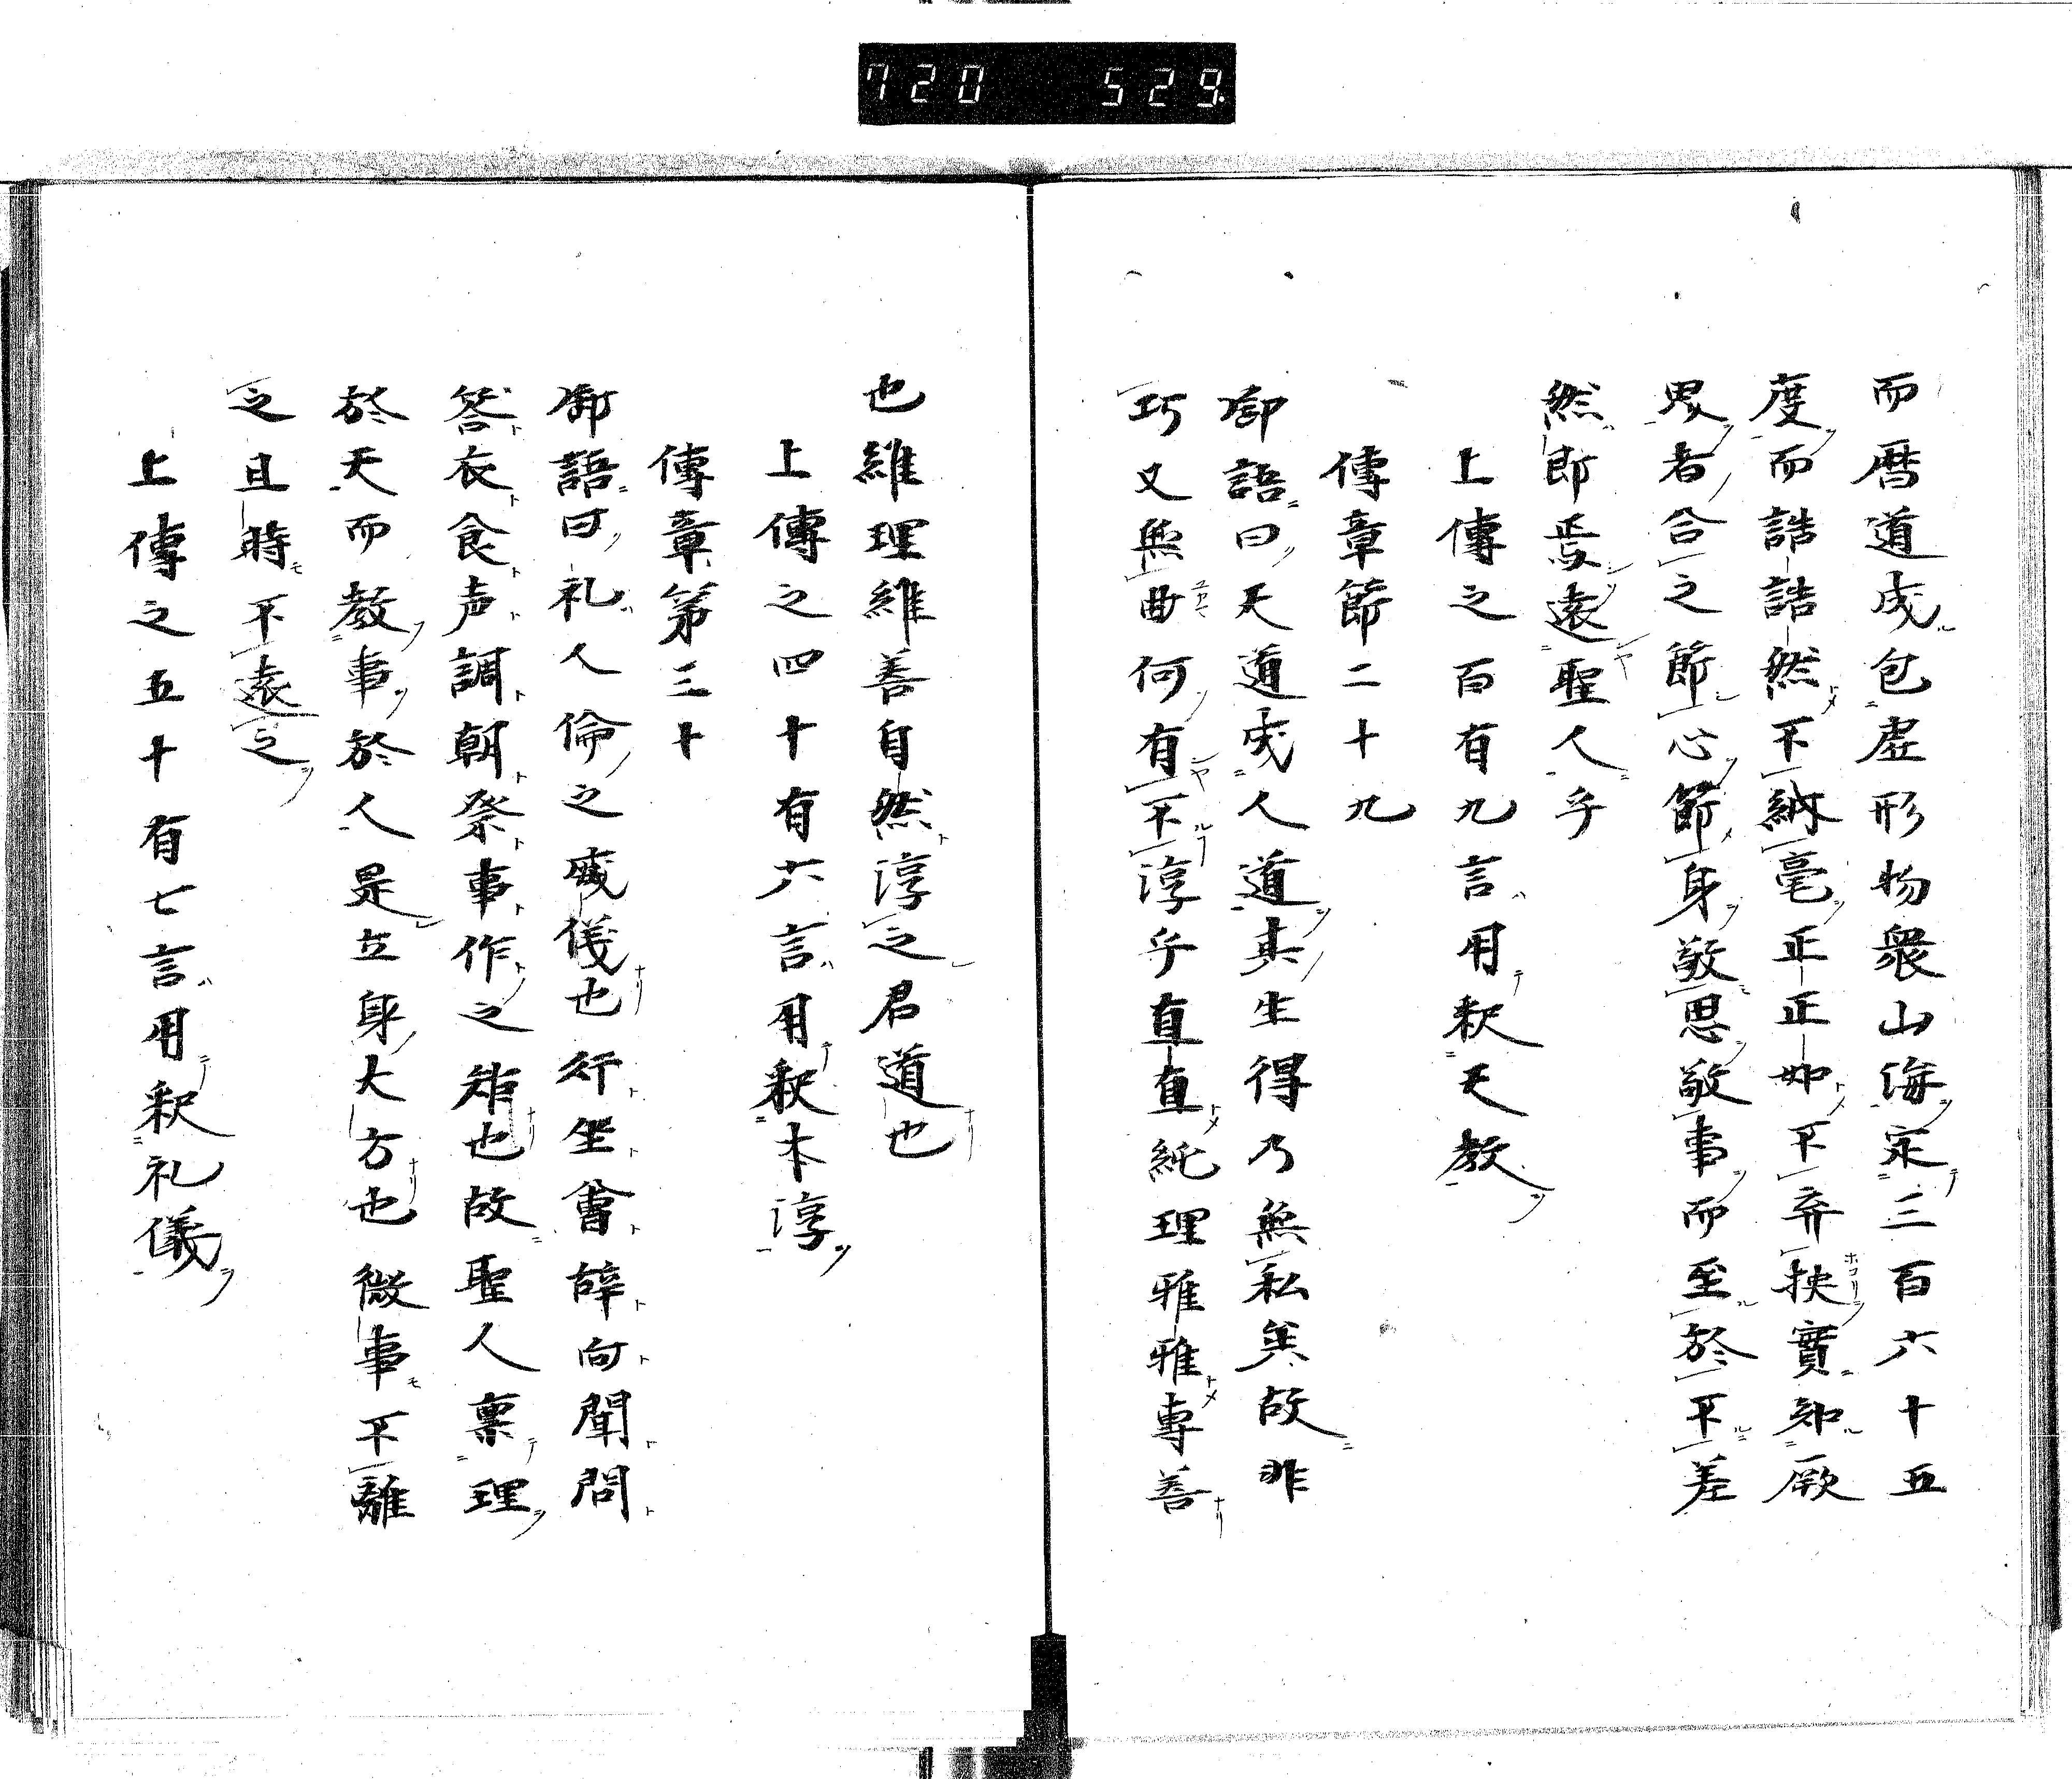 720 529
而暦道成包虚形物衆山海定三百六十五
度而誥誥然不納毫正正如不弃抰實知厥
界者合之節心節身敬思敬事而至於不差
然即焉遠聖人乎
上傳之百有九言用釈天教
傳章節二十九
御語曰天道成人道其生得乃無私矣故非
巧又無曲何有不淳乎直直純理雅雅専善
也維理維善自然淳之君道也
上傳之四十有六言用釈本淳
傳章第三十
御語曰礼人倫之威儀也行坐會辞向聞問
答衣食声調朝祭事作之矩也故聖人禀理
於天而教事於人是立身大方也微事不離
之且時不遠之
上傳之五十有七言用釈礼儀